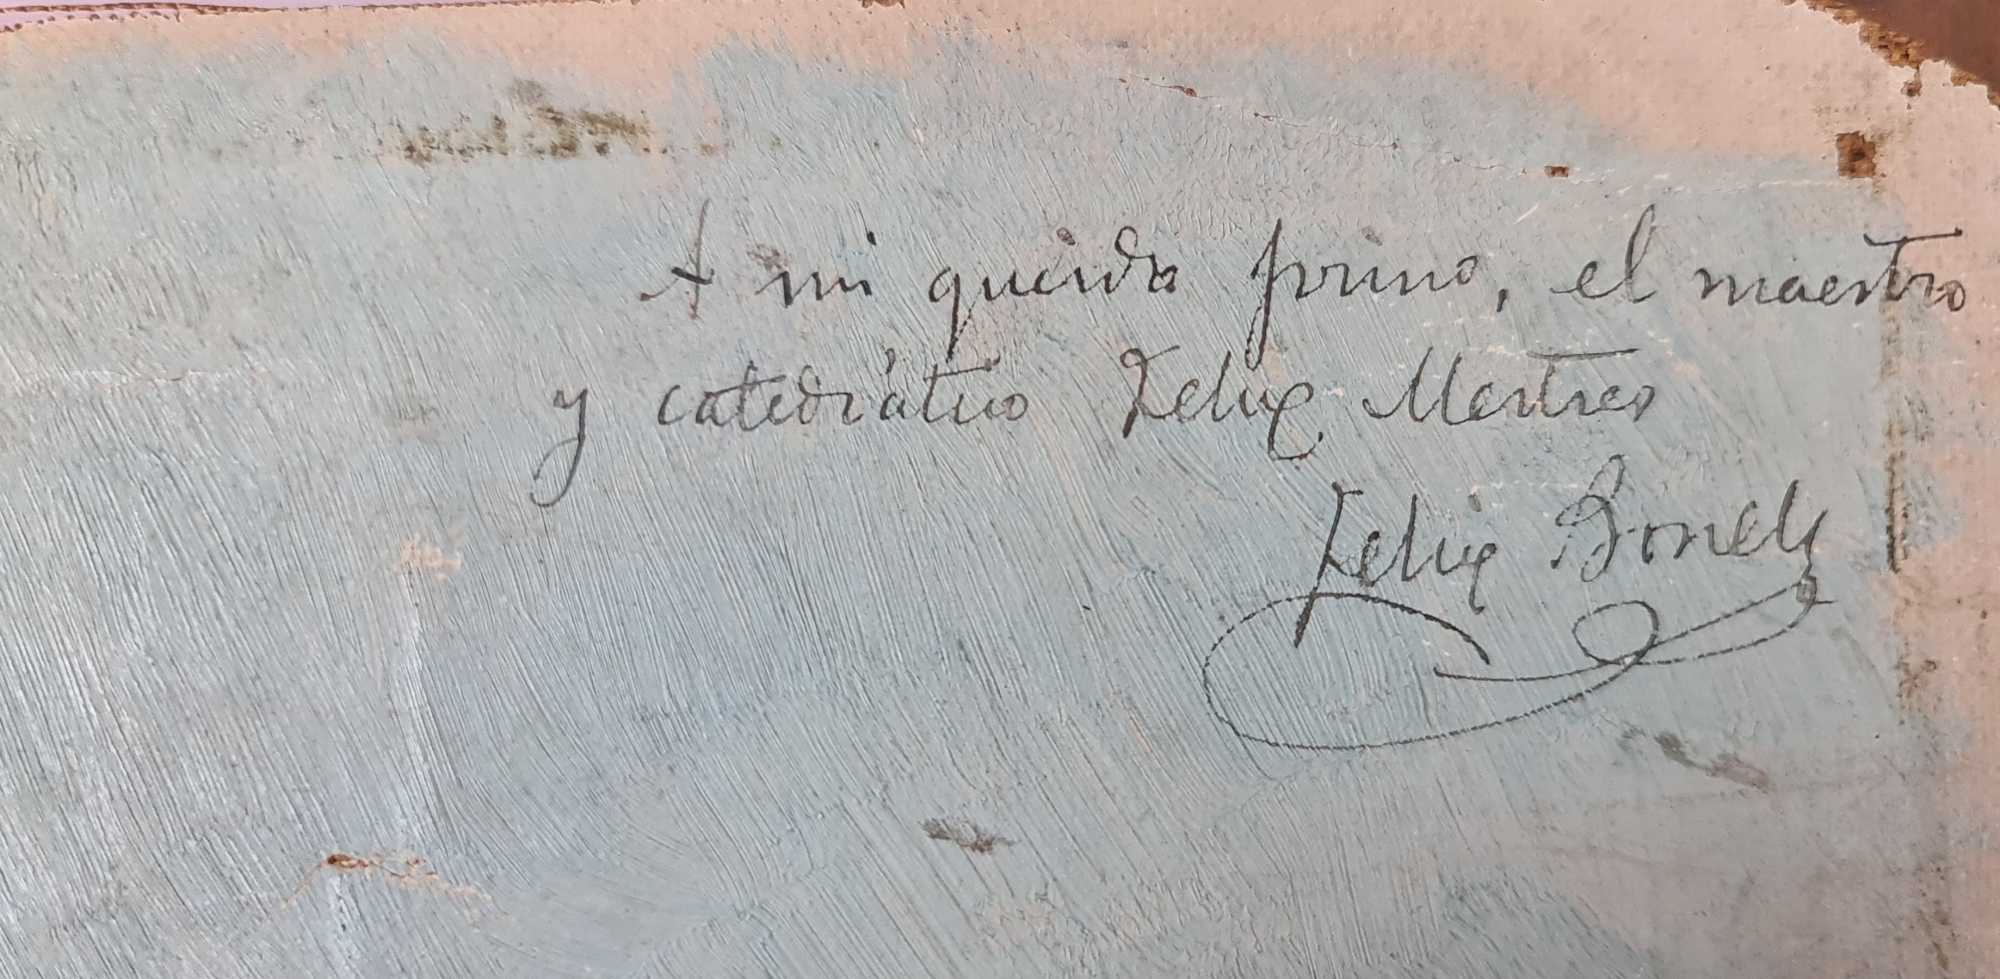 A mi querido primo, el maestro
y catedrático Felix Mestres
Felix Bonells